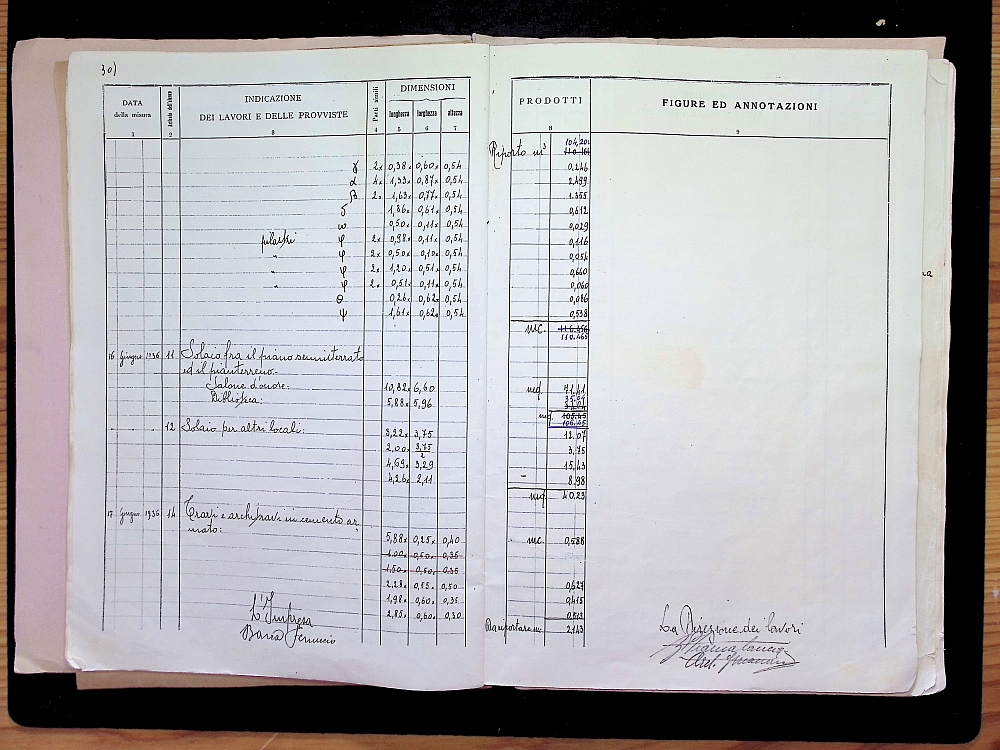 30)
DATA della misura INDICAZIONE DEI LAVORI E DELLE PROVVISTE Parti simili DIMENSIONI lunghezza larghezza altezza PRODOTTI FIGURE ED ANNOTAZIONI
1 2 3 4 5 6 7 8 9
Riporto m³ 104,201
γ 2x 0,38x 0,60x 0,54 0,246
α 4x 1,33x 0,87x 0,54 2,499
β 2x 1,63x 0,77x 0,54 1.355
δ 1,86x 0,61x 0,54 0,612
ω 0,50x 0,11x 0,54 0,029
pilastri φ 2x 0,98x 0,11x 0,54 0,116
" φ 2x 0,50x 0,10x 0,54 0,054
" φ 2x 1,20x 0,51x 0,54 0,660
" φ 2x 0,51x 0,11x 0,54 0,060
θ 0,26x 0,62x 0,54 0,086
ψ 1,61x 0,62x 0,54 0,538
mc. 116.456
110.465
16 Giugno 1936 11 Solaio fra il piano seminterrato
ed il pianterreno.
Salone d'onore. 10,82x 6,60 mq. 71.41
Biblioteca: 5,88x 5,96 35.04
mq. 106.45
12 Solaio per altri locali: 3,22x 3,75 12.07
2,00x 3,75/2 3,75
4,69x 3,29 15,43
4,26x 2,11 8,98
mq 40.23
17 Giugno 1936 14 Travi e architravi in cemento ar-
mato: 5,88x 0,25x 0,40 mc. 0,588
1,00x 0,50x 0,35
1,50x 0,50x 0,35
2,28x 0,55x 0,50 0,627
1,98x 0,60x 0,35 0,415
2,85x 0,60x 0,30 0,513
Da riportare mc. 2,143
L'Impresa
La Direzione dei lavori